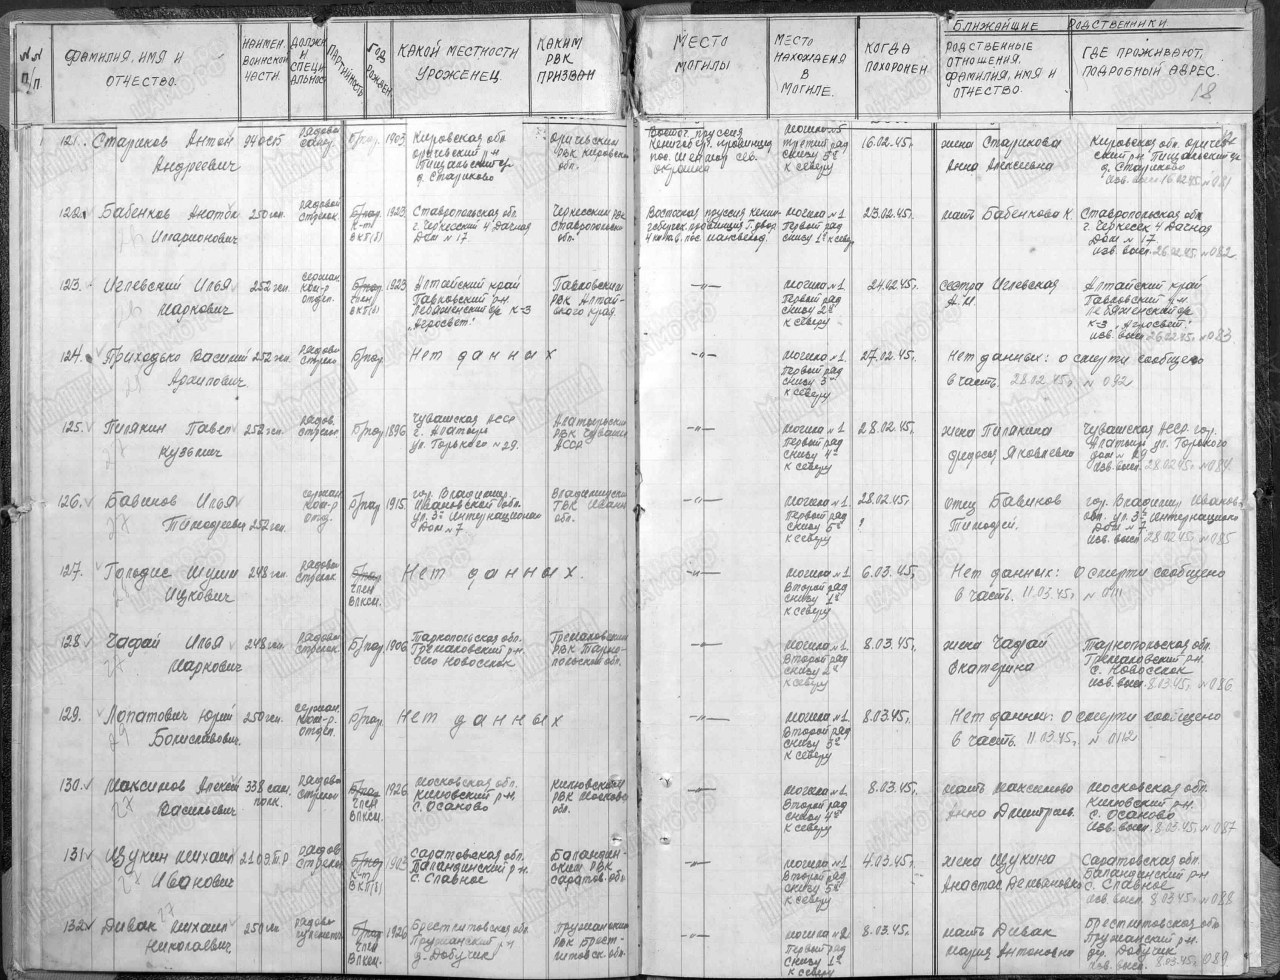 № № п/п
ФАМИЛИЯ, ИМЯ И ОТЧЕСТВО.
НАИМЕН. ВОИНСКОЙ ЧАСТИ.
ДОЛЖН И СПЕЦИАЛЬНОС
ПАРТИЙНОСТЬ
ГОД РОЖДЕН.
КАКОЙ МЕСТНОСТИ УРОЖЕНЕЦ
КАКИМ РВК ПРИЗВАН
МЕСТО МОГИЛЫ
МЕСТО НАХОЖДЕНИЯ В МОГИЛЕ.
КОГДА ПОХОРОНЕН
БЛИЖАЙШИЕ РОДСТВЕННИКИ
РОДСТВЕННЫЕ ОТНОШЕНИЯ, ФАМИЛИЯ, ИМЯ И ОТЧЕСТВО.
ГДЕ ПРОЖИВАЮТ, ПОДРОБНЫЙ АДРЕС.
18
121. Стариков Антон Андреевич
Б/пар. 1903 Кировская обл. Оричевский р-н д. Стариково
Оричевским РВК Кировской обл.
Восточ. Пруссия
третий ряд снизу 5й к северу
16.02.45г.
жена Старикова Анна Алексеевна
Кировская обл. д. Стариково изв. высл. 16.02.45 №081
122. Бабенков Анатол Иларионович 250 сп. рядовой стрелок
1923 Ставропольская обл. г. Черкесский 4 Дачная Дом № 17
Черкесским РВК Ставропольской обл.
могила №1 Первый ряд снизу 1й к северу
23.02.45г.
мать Бабенкова К.
Ставропольская обл. г. Черкесск 4 Дачная Дом № 17 изв. высл. 26.02.45 №082
123. Иглевский Илья Маркович 252 сп. сержан. ком-р отдел.
Б/пар член ВКП(б) 1923 Алтайский край Павловский р-н к-з „Агросвет."
Павловским РВК Алтайского края
—"—
могила №1 Первый ряд снизу 2й к северу
24.02.45г.
сестра Иглевская А.И.
Алтайский край Павловский р-н к-з „Агросвет" изв. высл. 26.02.45г. №083
124. Приходько Василий Архипович. 252 сп. рядово стрело
Б/пар Нет данных
—"—
могила №1 Первый ряд снизу 3й к северу
27.02.45г.
Нет данных: о смерти сообщено в часть. 28.02.45г. №092
125. Пилякин Павел Кузьмич 252 сп. рядов. стрелок
Б/пар 1896 Чувашская АССР г. Алатырь ул. Горького №29.
РВК Чуваш АССР
—"—
могила №1 Первый ряд снизу 4й к северу
28.02.45г.
жена Пилякина Федосья Яковлевна
Чувашская АССР гор. Алатырь ул. Горького дом №29 изв. высл. 28.02.45г. №084
126. Бавинов Илья Тимофеевич 252 сп. сержан. ком-р отд.
Б/пар 1915. гор. Владимир Ивановской обл. ул. 3й Интернационал Дом №7
—"—
могила №1 Первый ряд снизу 5й к северу
28.02.45г. ?
отец Бавинов Тимофей.
гор. Владимир Иванов. обл. ул. 3й Интернацион Дом №7 изв. высл. 28.02.45г. №085
127. Гольдис Шулим Ицкович 248 сп. рядово стрелок
Б/пар член ВЛКСМ. Нет данных.
—"—
могила №1 Второй ряд снизу 1й к северу
6.03.45г.
Нет данных: о смерти сообщено в часть. 11.03.45г. №0111
128 Чадай Илья Маркович 248 сп. рядово стрелок
Б/пар 1906 Тарнопольская обл. Гримайловский р-н. село Новоселок
РВК Тарнопольской обл.
—"—
могила №1 Второй ряд снизу 2й к северу
8.03.45г.
жена Чадай Екатерина
Тарнопольская обл. с. Новоселок изв. высл. 8.03.45г. №086
129. Лопатович Юрий Болиславович. 250 сп. сержан. ком-р. отдел.
Б/пар Нет данных
—"—
могила №1 Второй ряд снизу 3й к северу
8.03.45г.
Нет данных: о смерти сообщено в часть. 11.03.45г. №0112
130. Максимов Алексей Васильевич 338 сап. полк. рядово стрелок
Б/пар член ВЛКСМ. 1926 Московская обл. с. Осаново
РВК Московс обл.
—"—
могила №1 Второй ряд снизу 4й к северу
8.03.45г.
мать Максимова Анна Дмитриев.
Московская обл. с. Осаново изв. высл. 8.03.45г. №087
131 Щукин Михаил Иванович рядово стрелок
Б/пар 1903 Саратовская обл. Баландинский р-н. с. Славное
Баландинским РВК Саратов. обл
—"—
могила №1 Второй ряд снизу 5й к северу
4.03.45г.
жена Щукина Анастас Демьяновна
Саратовская обл. Баландинский р-н с. Славное изв. высл. 8.03.45г. №088
132 Дивак Михаил Николаевич. 250 сп
Б/пар член ВЛКСМ. 1926 Брестлитовская обл. Пружанский р-н д. Добучик
Пружанским РВК Брестлитовск обл.
—"—
могила №2 Первый ряд снизу 1й к северу
8.03.45г.
мать Дивак Мария Антоновна
Брестлитовская обл. Пружанский р-н. д. Добучик изв. высл. 8.03.45г. №089